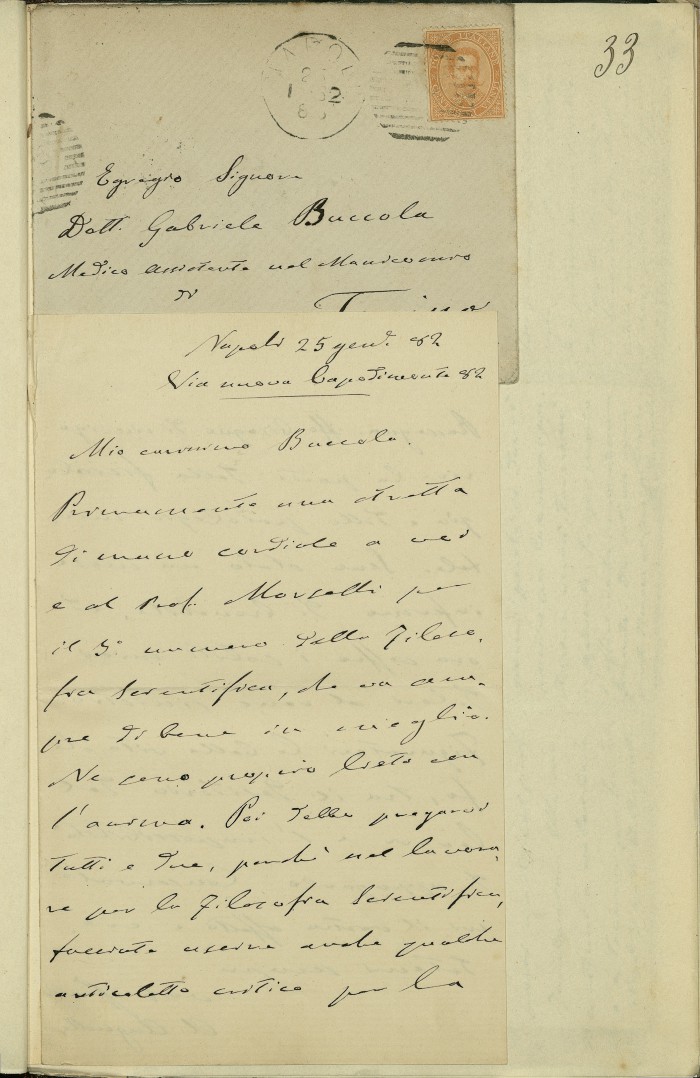 33
NAPOLI
Egregio Signore
Dott. Gabriele Buccola
Medico Assistente nel Manicomio
di
Torino
Napoli 25 genn. 82
Via nuova Capodimonte 82
Mio carissimo Buccola.
Primamente una stretta
di mano cordiale a voi
e al Prof. Morselli per
il 5° numero della Filoso-
fia Scientifica, che va sem-
pre di bene in meglio.
Ne sono proprio lieto con
l'anima. Poi debbo pregarvi
tutti e due, perchè nel lavora-
re per la Filosofia Scientifica,
facciate uscire anche qualche
articoletto critico per la